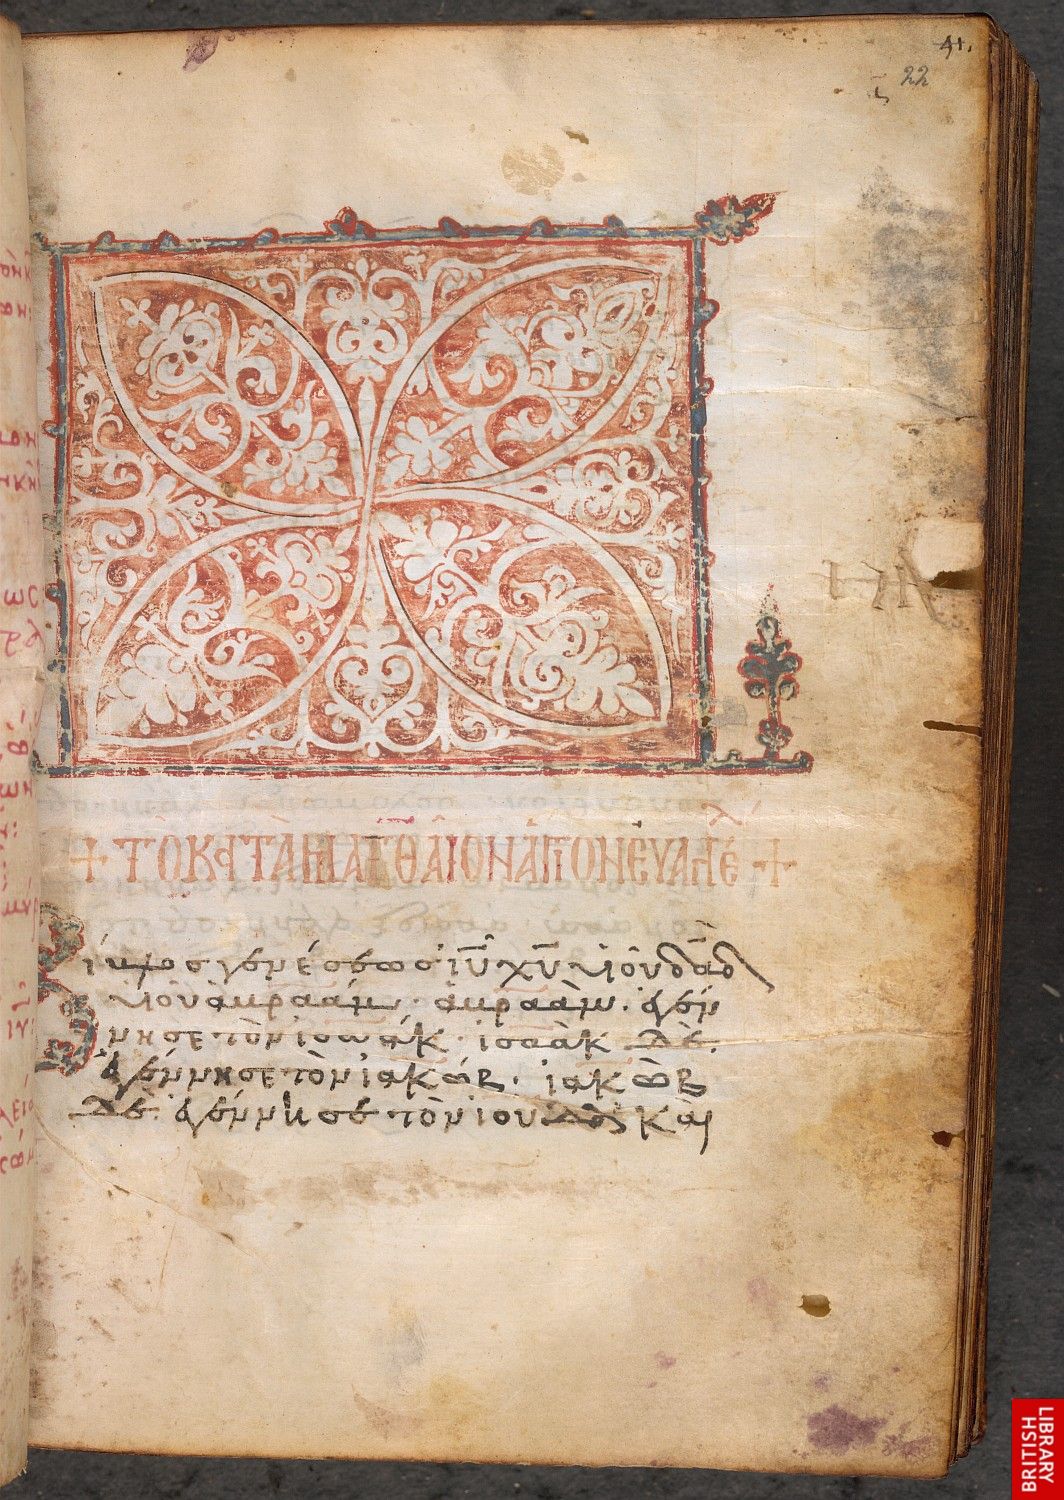 41.
22
+ ΤΟ ΚΑΤΑ ΜΑΤΘΑΙΟΝ ΑΓΙΟΝ ΕΥΑΓΓΕ +
Βίβλος γενέσεως ιυ χυ υιου δαδ
υιου αβρααμ· αβρααμ· εγεν
νησε τὸν ισαακ· ισαακ δε·
εγέννησε τὸν ιακώβ· ιακὼβ
δε· εγέννησε τὸν ιούδαν και
BRITISH
LIBRARY